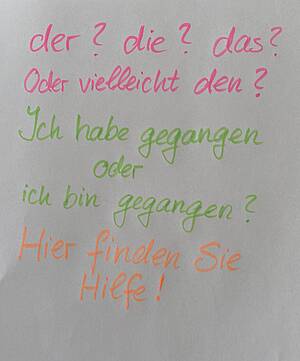 der? die? das?
Oder vielleicht den?
Ich habe gegangen
oder
ich bin gegangen?
Hier finden Sie
Hilfe!